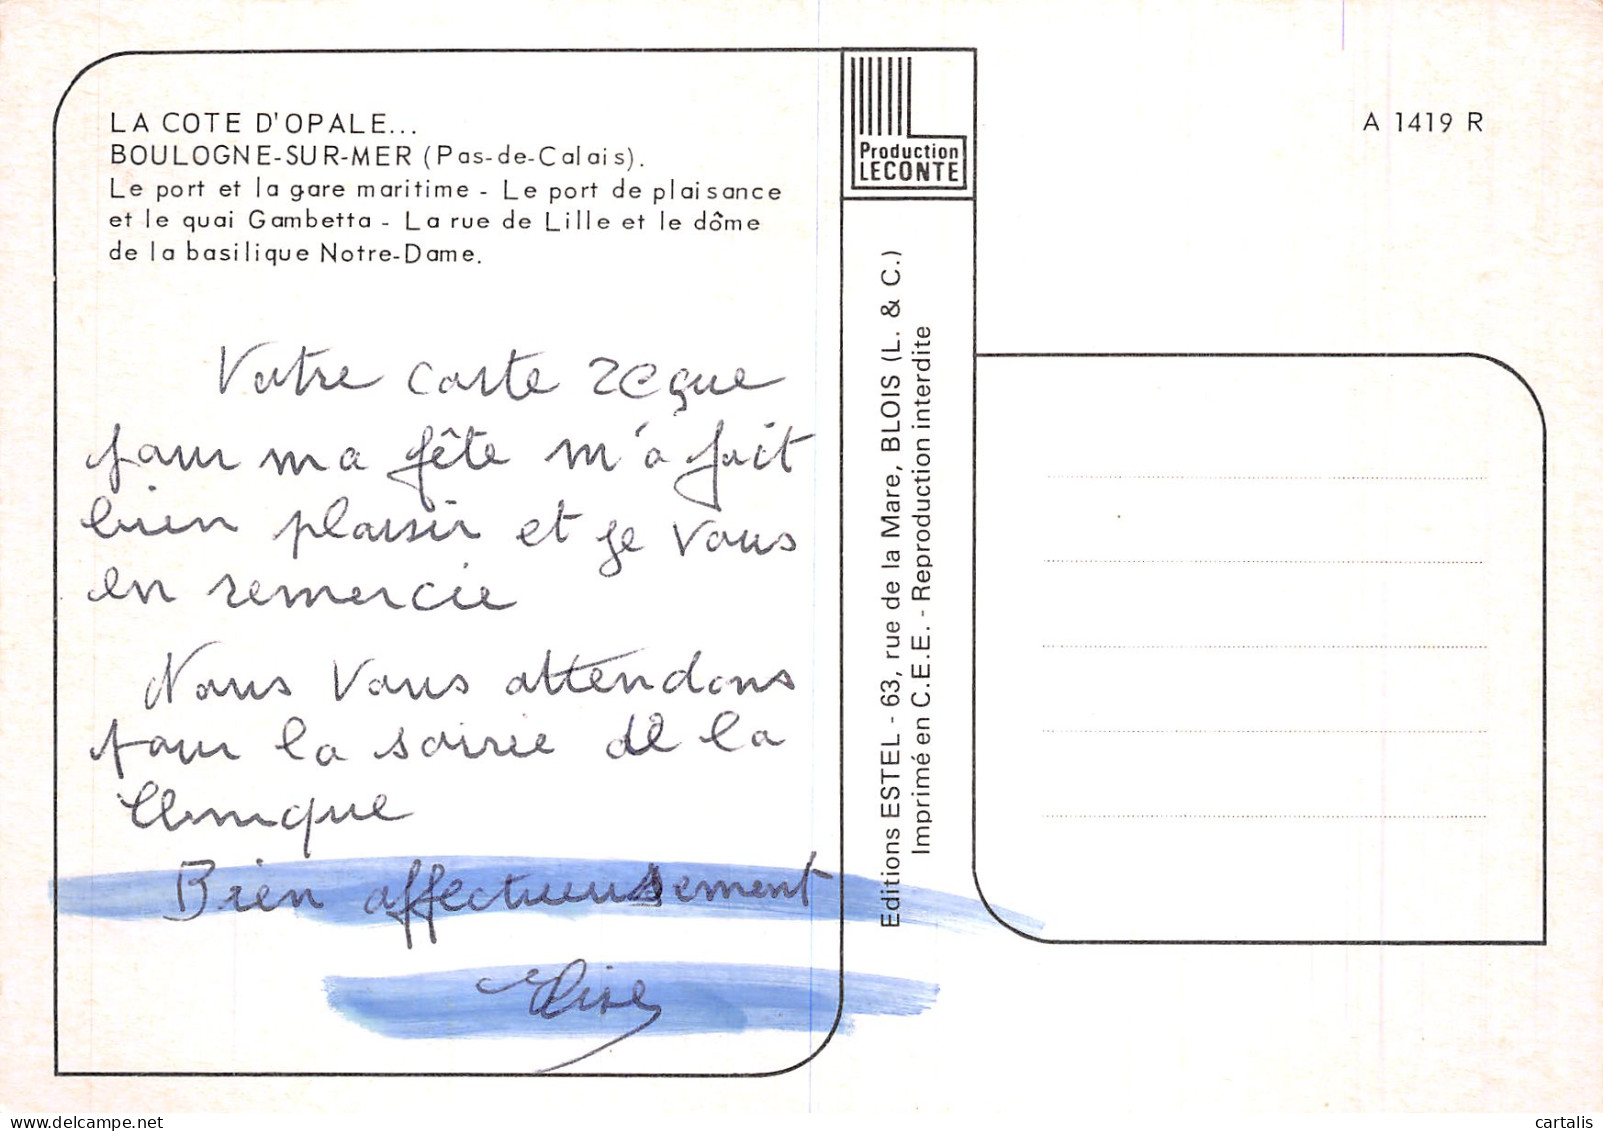 LA COTE D'OPALE...
BOULOGNE-SUR-MER (Pas-de-Calais).
Le port et la gare maritime - Le port de plaisance
et le quai Gambetta - La rue de Lille et le dôme
de la basilique Notre-Dame.
Votre carte reçue
pour ma fête m'a fait
bien plaisir et je vous
en remercie
Nous vous attendons
pour la soirée de la
Clinique
Bien affectueusement
Elise
Production
LECONTE
Editions ESTEL - 63, rue de la Mare, BLOIS (L. & C.)
Imprimé en C.E.E. - Reproduction interdite
A 1419 R
cartalis